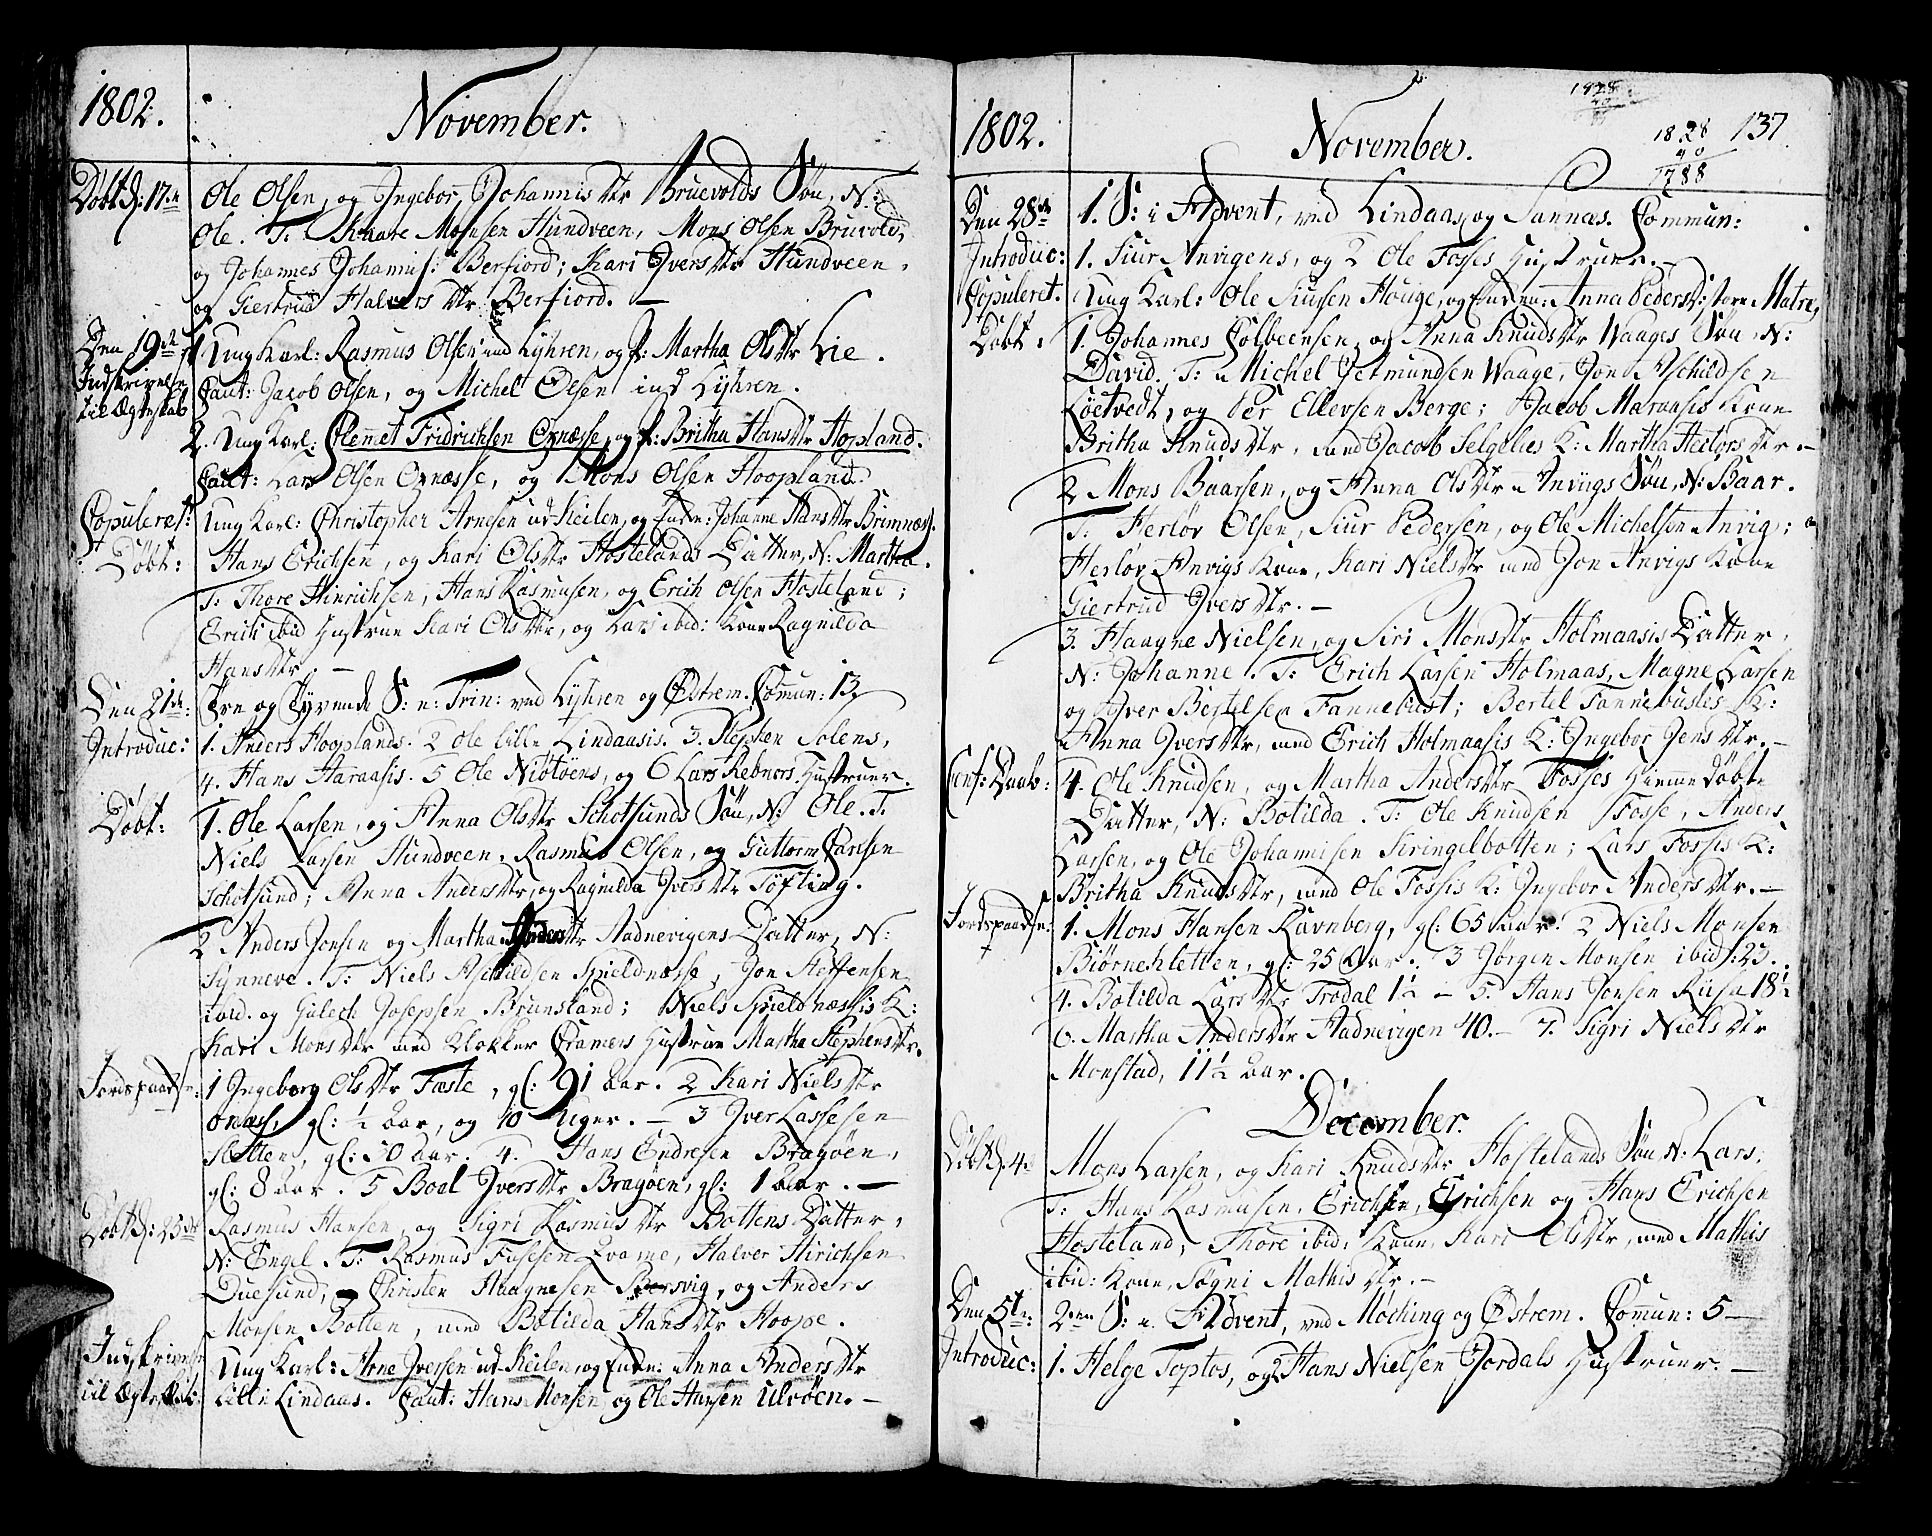 1802.
November.
Døbt d: 17de
Ole Olsen, og Ingebor Johannis Dtr Bruevolds Søn, N:
Ole. T: Knare Monsen Hundveen, Mons Olsen Bruvold,
og Johannes Johannis: Berfiord; Kari Ivers Dtr Hundveen,
og Giertrud Halvers Dtr Berfiord. —
Den 19de
Indskrivelse
til Ægteskab
1 Ung Karl: Rasmus Olsen ind Lyhren, og P: Martha Ols Dtr Lie.
Caut: Jacob Olsen, og Michel Olsen ind Lyhren.
2. Ung Karl: Clemet Fridrichsen Oxnæsse, og P: Britha Hans Dtr Hopland.
Caut: Lars Olsen Oxnæsse, og Mons Olsen Hoopland.
Copuleret:
Ung Karl: Christopher Arnesen ud Keilen, og Enden: Johanne Hans Dtr Brimnæss.
Døbt:
Hans Erichsen, og Kari Ols Dtr Hostelands Datter, N: Martha.
T: Thore Hinrichsen, Hans Rasmusen, og Erich Olsen Hosteland;
Erich ibid Hustrue Kari Ols Dtr, og Lars ibid: Kone Ragnilda
Hans Dtr. —
Den 21de:
Fre og Tyvende S: n: Trin: ved Lyhren og Østrem. Comun: 13
Introduc:
1. Anders Hooplands. 2 Ole lille Lindaasis. 3. Stephen Solens,
4. Hans Haraasis. 5 Ole Nibtøens, og 6 Lars Rebnors Hustruer.
Døbt:
1. Ole Larsen, og Anna Ols Dtr Schotsunds Søn, N: Ole. T:
Niels Larsen Hundveen, Rasmus Olsen, og Guttorm Larsen
Schotsund; Anna Anders Dtr, og Ragnilda Ivers Dtr Tøfting.
2 Anders Jonsen og Martha Anders Dtr Aadnevigens Datter, N:
Synneve. T: Niels Aschildsen Spieldnæsse, Jon Steffensen
ibid. og Gulech Josepsen Brunsland; Niels Spieldnæssis K:
Kari Mons Dtr med Klokker Cramers Hustrue Martha Stephens Dtr.
Jordspaadse:
1 Ingeborg Ols Dtr Fæste, gl: 91 Aar. 2 Kari Niels Dtr
Onæs, gl: ½ Aar, og 10 Uger. — 3 Iver Lassesen
Sletten, gl: 50 Aar. 4. Hans Endresen Bragøen,
gl: 8 Aar. 5 Boel Ivers Dtr Bragøen, gl: 1 Aar. —
Døbt d: 25de
Rasmus Hansen, og Sigri Rasmus Dtr Bottens Datter,
N: Engel. T: Rasmus Fosesen Qvame, Halver Hirichsen
Duesund, Christen Haagnesen Børsvig, og Anders
Monsen Botten, med Botilda Hans Dtr Hoope.
Indskrivelse
til Ægteskab:
Ung Karl: Arne Iversen ud Keilen, og Enden: Anna Anders Dtr
Lille Lindaas. Caut: Hans Monsen og Ole Hansen Ulvøen. —
1802.
November.
137
1828
40
1788
Den 28de
1. S: i Advent, ved Lindaas og Sannas. Commun:
Introduc:
1. Siur Anvigens, og 2 Ole Fosses Hustruer. —
Copuleret.
Ung Karl: Ole Siursen Houge, og Enden: Anna Peders D: store Matre,
Døbt.
1. Johannes Colbeensen, og Anna Knuds Dtr Waages Søn, N:
David. T: Michel Jetmundsen Waage, Jon Aschildsen
Løetvedt, og Per Ellevsen Berge; Jacob Maraasis Kone
Britha Knuds Dtr, med Jacob Selgelies K: Martha Hectors Dtr. —
2 Mons Baarsen, og Anna Ols Dtr Anvigs Søn, N: Baar.
T: Herløv Olsen, Siur Pedersen, og Ole Michelsen Anvig;
Herløv Anvigs Kone, Kari Niels Dtr med Jon Anvigs Kone
Giertrud Ivers Dtr. —
3. Haagne Nielsen, og Siri Mons Dtr Holmaasis Datter,
N: Johanne. T: Erich Larsen Holmaas, Magne Larsen
og Iver Bertelsen Fannebust; Bertel Fannebustes K:
Anna Ivers Dtr, med Erich Holmaasis K: Ingebor Jens Dtr. —
Conf: Daab:
4. Ole Knudsen, og Martha Anders Dtr Fosses Hiemmedøbte
Datter, N: Botilda. T: Ole Knudsen Fosse, Anders
Larsen, og Ole Johannisen Kringelbotten; Lars Fossis K:
Britha Knuds Dtr, med Ole Fossis K: Ingebor Anders Dtr. —
Jordspaadse:
1. Mons Hansen Ravnberg, gl: 65 Aar. 2 Niels Monsen
Biørnehletten, gl: 25 Aar. 3 Jørgen Monsen ibid: 23.
4. Botilda Lars Dtr Trodal 1½ — 5. Hans Jonsen Riisa 18½
6. Martha Anders Dtr Aadnevigen 40. — 7. Sigri Niels Dtr
Monstad, 11½ Aar.
December.
Døbt d: 4de
Mons Larsen, og Kari Knuds Dtr Hostelands Søn, N: Lars.
T: Hans Rasmusen, Erichsen, Erichsen og Hans Erichsen
Hosteland; Thore ibid: Kone, Kari Ols Dtr, med Mathis
ibid: Kone, Søgni Mathis Dtr. —
Den 5te:
2den S: i Advent, ved Møching og Østrem. Comun: 5 —
Introduc:
1. Helge Toptos, og 2 Hans Nielsen Jordals Hustruer. —